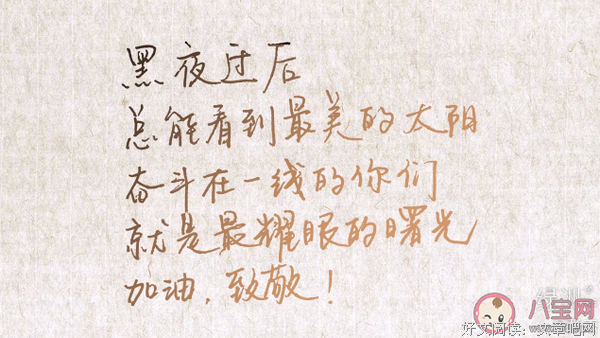 黑夜过后
总能看到最美的太阳
奋斗在一线的你们
就是最耀眼的曙光
加油，致敬！
八宝网
好文阅读：文章吧网